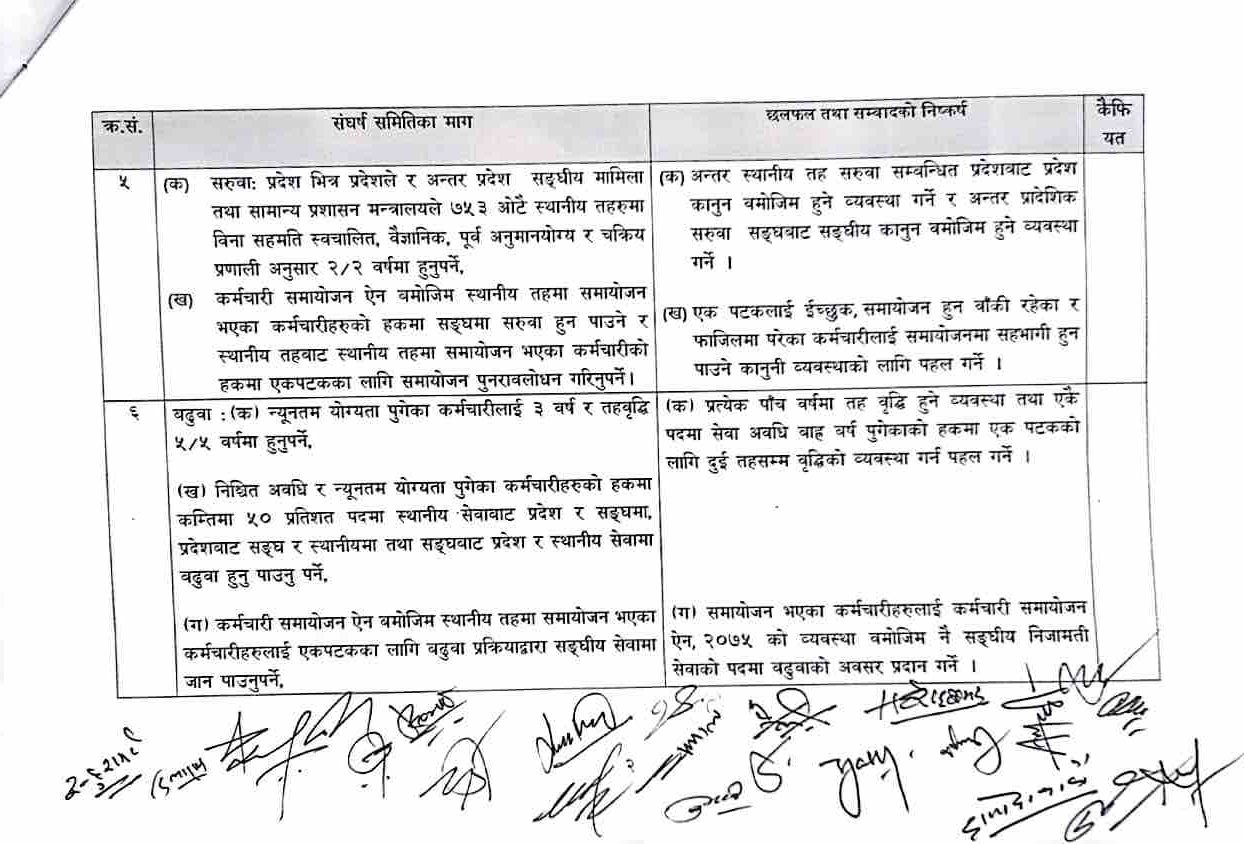 क्र.सं.
संघर्ष समितिका माग
छलफल तथा सम्वादको निष्कर्ष
कैफि
यत
५
(क) सरुवाः प्रदेश भित्र प्रदेशले र अन्तर प्रदेश सङ्घीय मामिला
तथा सामान्य प्रशासन मन्त्रालयले ७५३ ओटै स्थानीय तहरुमा
विना सहमति स्वचालित, वैज्ञानिक, पूर्व अनुमानयोग्य र चक्रिय
प्रणाली अनुसार २/२ वर्षमा हुनुपर्ने,
(ख) कर्मचारी समायोजन ऐन बमोजिम स्थानीय तहमा समायोजन
भएका कर्मचारीहरुको हकमा सङ्घमा सरुवा हुन पाउने र
स्थानीय तहबाट स्थानीय तहमा समायोजन भएका कर्मचारीको
हकमा एकपटकका लागि समायोजन पुनरावलोधन गरिनुपर्ने।
(क) अन्तर स्थानीय तह सरुवा सम्बन्धित प्रदेशबाट प्रदेश
कानुन वमोजिम हुने व्यवस्था गर्ने र अन्तर प्रादेशिक
सरुवा सङ्घबाट सङ्घीय कानुन वमोजिम हुने व्यवस्था
गर्ने ।
(ख) एक पटकलाई ईच्छुक, समायोजन हुन वाँकी रहेका र
फाजिलमा परेका कर्मचारीलाई समायोजनमा सहभागी हुन
पाउने कानुनी व्यवस्थाको लागि पहल गर्ने ।
६
बढुवा : (क) न्यूनतम योग्यता पुगेका कर्मचारीलाई ३ वर्ष र तहवृद्धि
५/५ वर्षमा हुनुपर्ने,
(ख) निश्चित अवधि र न्यूनतम योग्यता पुगेका कर्मचारीहरुको हकमा
कम्तिमा ५० प्रतिशत पदमा स्थानीय सेवाबाट प्रदेश र सङ्घमा,
प्रदेशबाट सङ्घ र स्थानीयमा तथा सङ्घबाट प्रदेश र स्थानीय सेवामा
बढुवा हुनु पाउनु पर्ने,
(ग) कर्मचारी समायोजन ऐन बमोजिम स्थानीय तहमा समायोजन भएका
कर्मचारीहरुलाई एकपटकका लागि बढुवा प्रक्रियाद्वारा सङ्घीय सेवामा
जान पाउनुपर्ने,
(क) प्रत्येक पाँच वर्षमा तह वृद्धि हुने व्यवस्था तथा एकै
पदमा सेवा अवधि वाह्र वर्ष पुगेकाको हकमा एक पटकको
लागि दुई तहसम्म वृद्धिको व्यवस्था गर्न पहल गर्ने ।
(ग) समायोजन भएका कर्मचारीहरुलाई कर्मचारी समायोजन
ऐन, २०७५ को व्यवस्था वमोजिम नै सङ्घीय निजामती
सेवाको पदमा बढुवाको अवसर प्रदान गर्ने ।